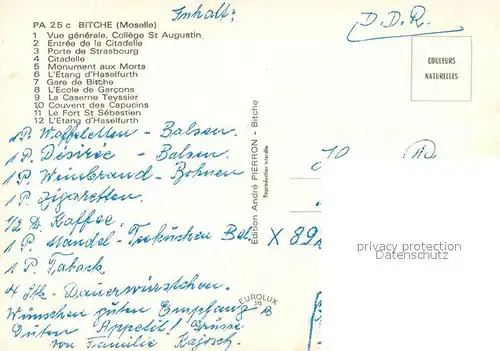 Inhalt:
D.D.R.
PA 25 c BITCHE (Moselle)
1 Vue générale, Collège St Augustin
2 Entrée de la Citadelle
3 Porte de Strasbourg
4 Citadelle
5 Monument aux Morts
6 L'Etang d'Haselfurth
7 Gare de Bitche
8 L'Ecole de Garçons
9 La Caserne Teyssier
10 Couvent des Capucins
11 Le Fort St Sébastien
12 L'Etang d'Haselfurth
COULEURS
NATURELLES
1 P. Waffeletten - Balsen.
1 P. Désirée - Balsen.
1 P. Weinbrand - Bohnen
1 P. Zigaretten.
1/2 Kaffee,
1 P. Mandel - Teekuchen Bal.
1 P. Taback
4 Stk. Dauerwürstchen.
Wünschen guten Empfang
Guten Appetit! Grüsse
von Familie
Edition André PIERRON - Bitche
Reproduction interdite
EUROLUX
X 89
privacy protection
AKPool.de